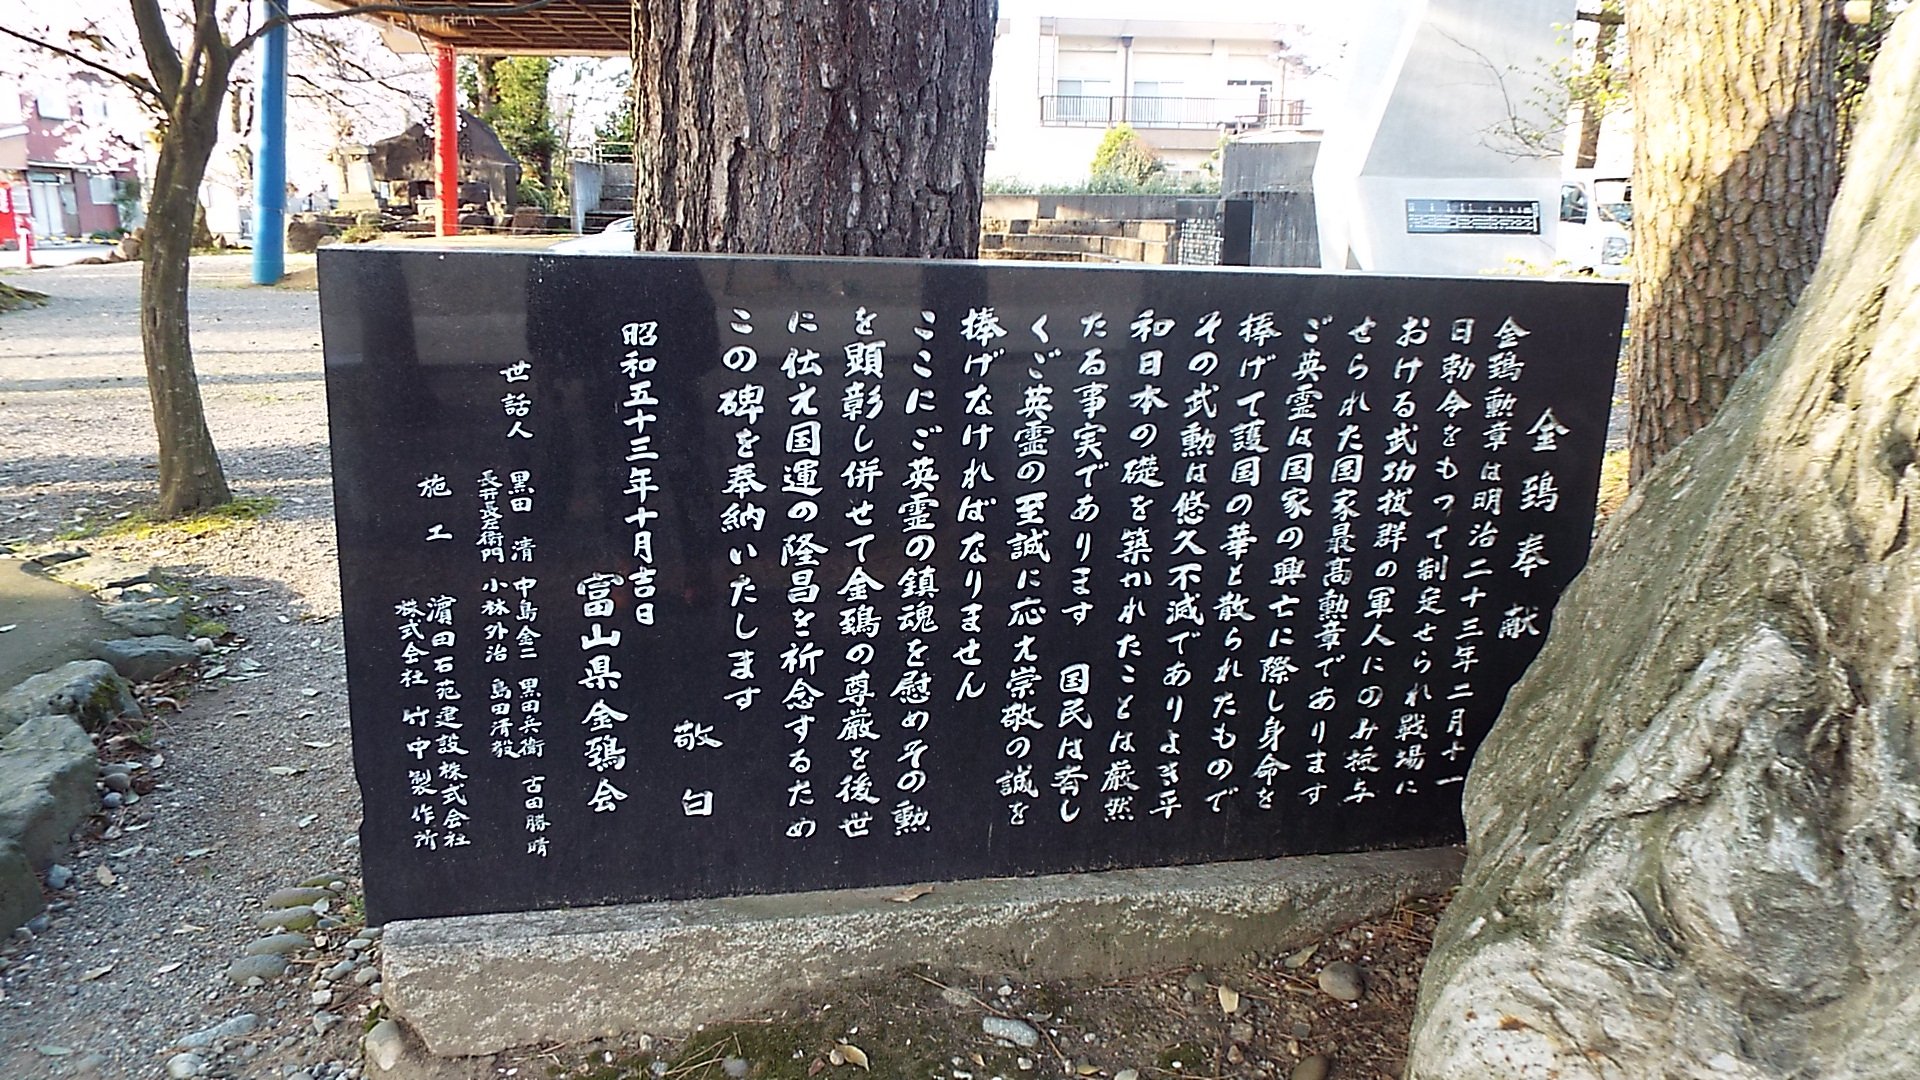 金鵄奉献
金鵄勲章は明治二十三年二月十一
日勅令をもって制定せられ戦場に
おける武功抜群の軍人にのみ授与
せられた国家最高勲章であります
ご英霊は国家の興亡に際し身命を
捧げて護国の華と散られたもので
その武勲は悠久不滅でありよき平
和日本の礎を築かれたことは厳然
たる事実であります 国民は斉し
くご英霊の至誠に応え崇敬の誠を
捧げなければなりません
ここにご英霊の鎮魂を慰めその勲
を顕彰し併せて金鵄の尊厳を後世
に伝え国運の隆昌を祈念するため
この碑を奉納いたします
敬白
昭和五十三年十月吉日
富山県金鵄会
世話人 黒田 清 中島金二 黒田兵衛 古田勝晴
長井長左衛門 小林外治 島田清毅
施工 濱田石苑建設株式会社
株式会社 竹中製作所